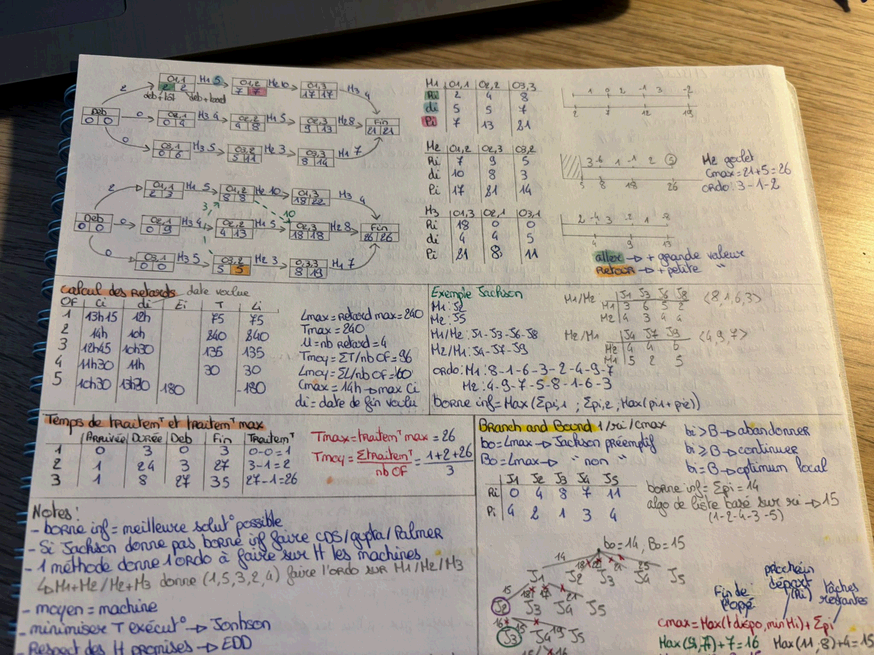 O1,1 M1 5 O1,2 M2 10 O1,3
2 2 7 7 17 17 M3 4
2 deb+tôt deb+tard
Deb 0 O2,1 M3 4 O2,2 M1 5 O2,3 M2 8 Fin
0 0 0 4 4 8 9 13 21 21
0 O3,1 M3 5 O3,2 M2 3 O3,3 M1 7
0 6 5 11 8 14
O1,1 M1 5 O1,2 M2 10 O1,3 M3 4
2 3 8 8 18 22
2 3 10
Deb 0 M3 4 O2,2 M1 5 O2,3 M2 8 Fin
0 0 0 9 4 13 18 18 26 26
0 O3,1 M3 5 O3,2 M2 3 O3,3 M1 7
0 0 5 5
M1 O1,1 O2,2 O3,3
Ri 2 4 8
di 5 5 7
Pi 7 13 21
M2 O1,2 O2,3 O3,2
Ri 7 9 5
di 10 8 3
Pi 17 21 14
M3 O1,3 O2,1 O3,1
Ri 18 0 0
di 4 4 5
Pi 21 8 11
2 7 12 19
5 8 18 26
4 9 13
M2 goulet
Cmax=21+5=26
ordo: 3-1-2
aller → + grande valeur
Retour → + petite "
Calcul des Retards date voulue
OF Ci di Ei T Li
1 13h15 12h 75 75
2 14h 10h 240 240
3 12h45 10h30 135 135
4 11h30 11h 30 30
5 10h30 13h30 180 -180
Lmax = retard max = 240
Tmax = 240
U = nb retard = 4
Tmoy = ΣT/nb OF = 96
Lmoy = ΣL/nb OF = 60
Cmax = 14h → max Ci
di = date de fin voulu
Exemple Jackson
M1: J2
M2: J5
M1/M2: J1-J3-J6-J8
M2/M1: J4-J7-J9
ordo: M1: 8-1-6-3-2-4-9-7
M2: 4-9-7-5-8-1-6-3
borne inf = Max (Σpi,1 ; Σpi,2, Max(pi1+pi2))
M1/M2 J1 J3 J6 J8 <8,1,6,3>
M1 3 6 5 2
M2 4 3 4 4
M2/M1 J4 J7 J9 <4,9,7>
M2 4 4 6
M1 5 2 5
Temps de traitemt et traitemt max
Arrivée Durée Deb Fin Traitemt
1 0 3 0 3 0-0=1
2 1 24 3 27 3-1=2
3 1 8 27 35 27-1=26
Tmax = traitemt max = 26
Tmoy = Σtraitemt / nb OF = 1+2+26 / 3
Branch and Bound 1/ri/Cmax
bo = Lmax → Jackson préemptif
Bo = Lmax → " non "
J1 J2 J3 J4 J5
Ri 0 4 8 7 11
Pi 4 2 1 3 4
bi > B → abandonner
bi ≥ B → continuer
bi = B → optimum local
borne inf = Σpi = 14
algo de liste basé sur ri → 15
(1-2-4-3-5)
bo = 14, Bo = 15
J1 J2 J3 J4 J5
J2 J3 J4 J5
J3 J4 J5
Fin de
prochain
départ
(Ri)
tâches
restantes
Cmax = Max(t dispo, min Ri) + Σpi
Max(11,8)+4=15
Notes:
- borne inf = meilleure solut° possible
- Si Jackson donne pas borne inf faire CDS/gupta/Palmer
- 1 méthode donne 1 ordo à faire sur H les machines
↳ M1+M2/M2+M3 donne (1,5,3,2,4) faire l'ordo sur M1/M2/M3
- moyen = machine
- minimiser T exécut° → Jonhson
- Respect des H promises → EDD